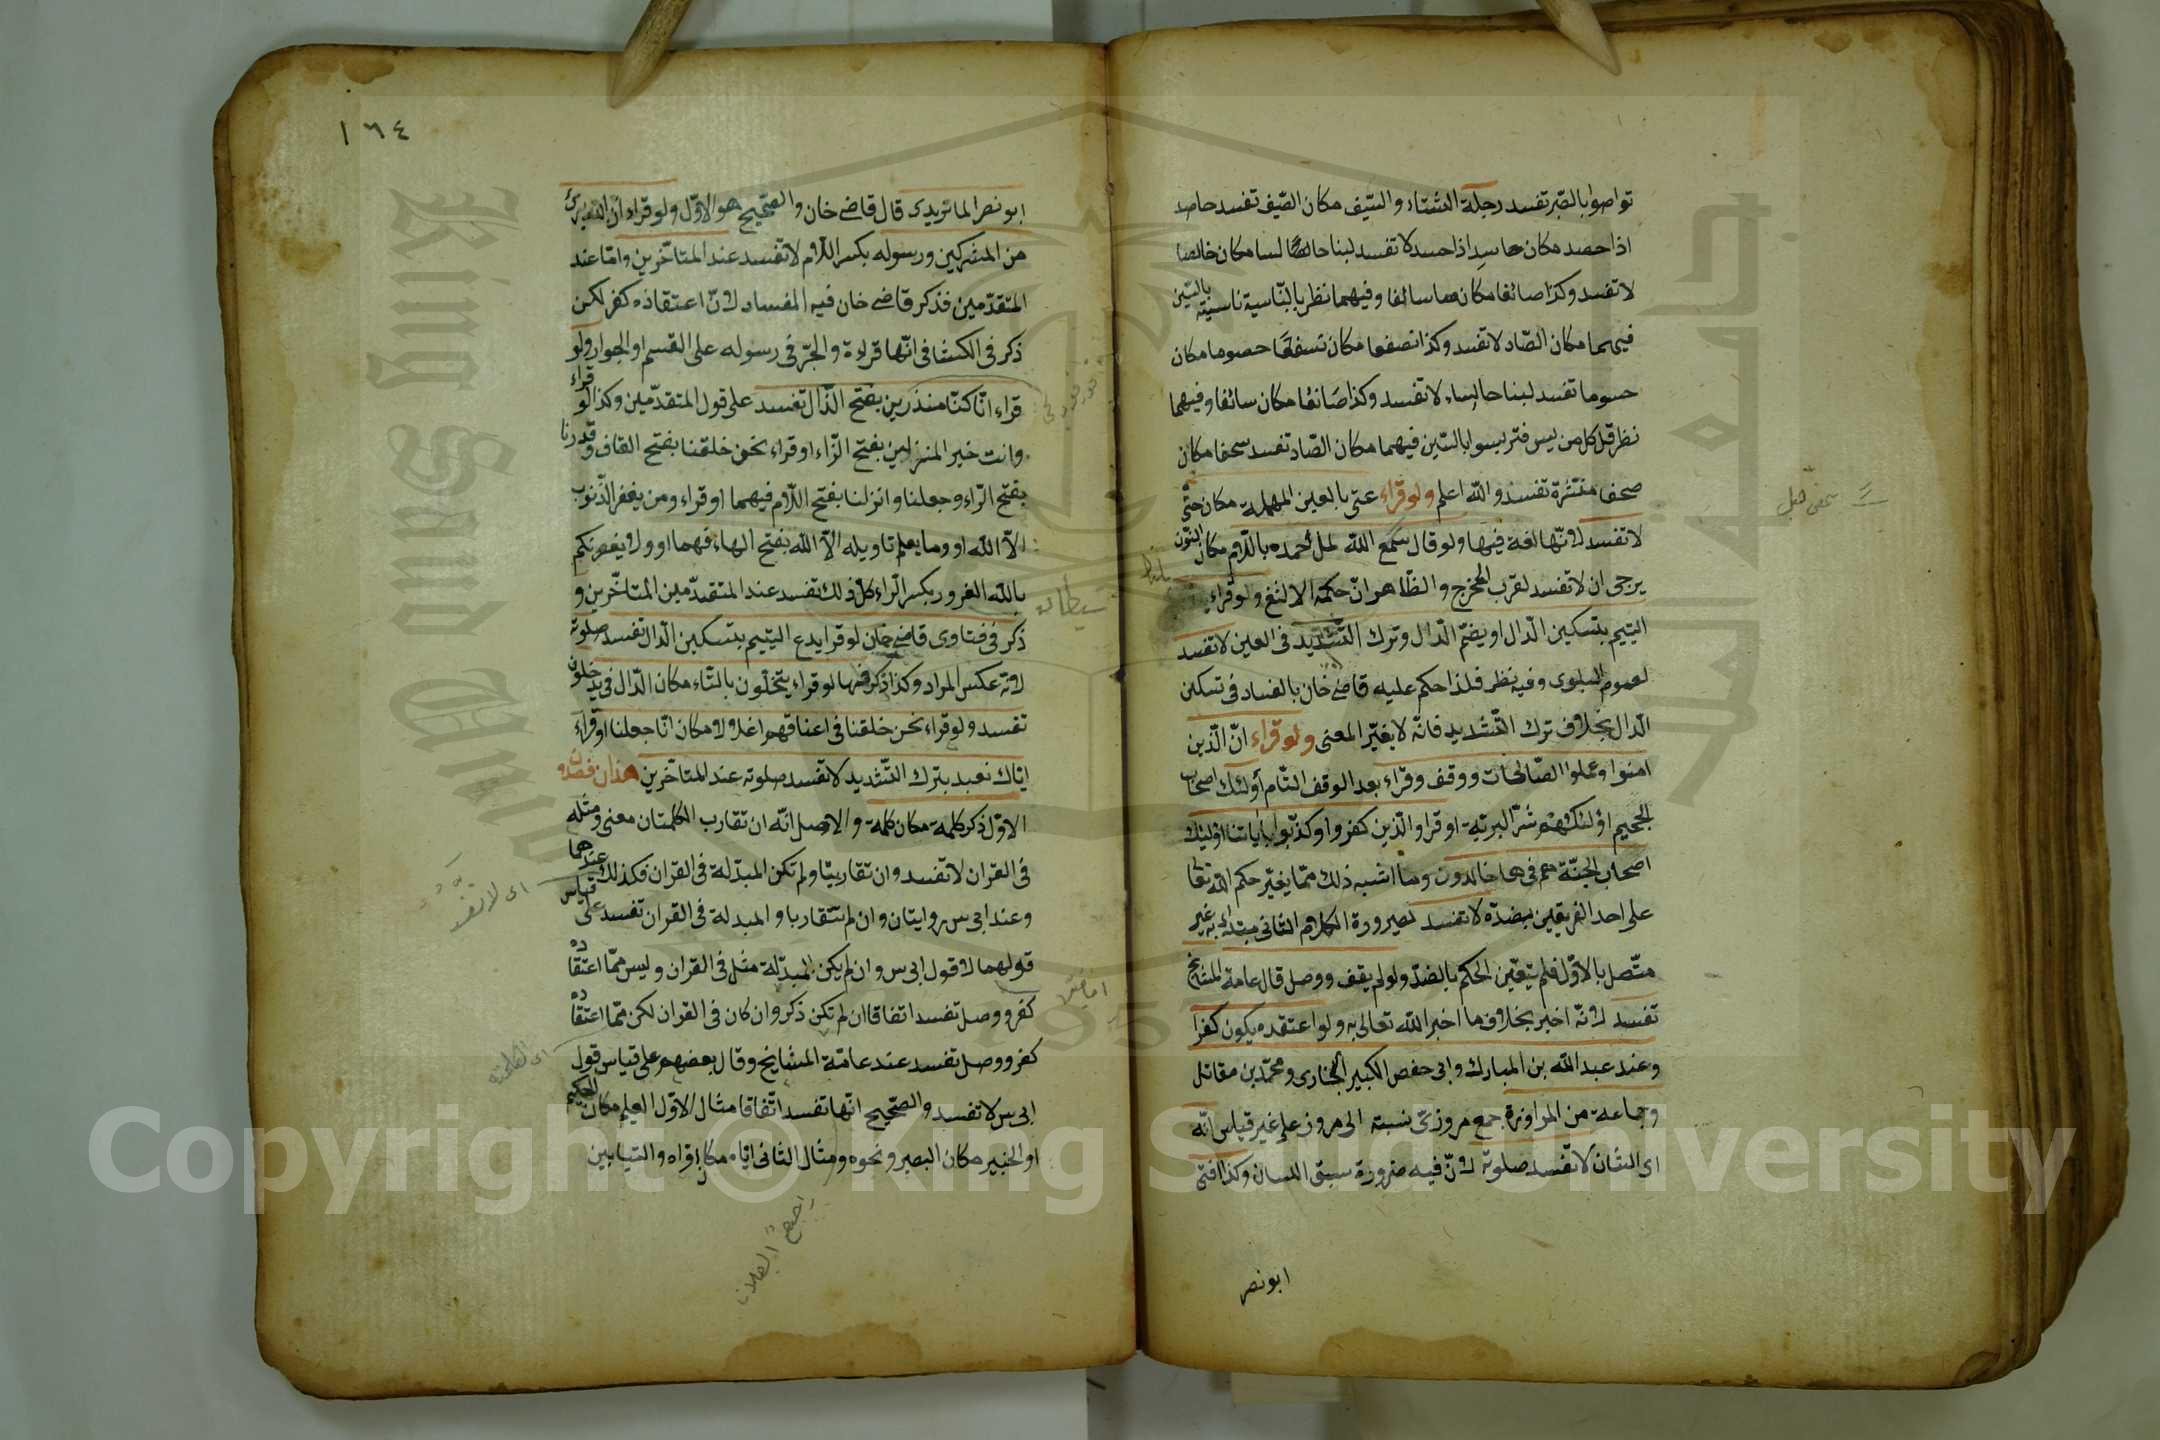 تواصوا بالصبر تفسد رحلة الشتاء والسيف مكان الصيف تفسد حاصد
اذا حصد مكان حاسد اذا حسد لا تفسد لبنا خالسا مكان خالصا
لا تفسد وكذا صائغا مكان سائغا وفيهما نظر بالناسية ناسية بالسين
فيهما مكان الصاد لا تفسد وكذا نصفعا مكان نسفعا حصوما مكان
حسوما تفسد لبنا لا تفسد وكذا صائغا مكان سائغا وفيهما
نظر قل كل متربس فتربسوا بالسين فيهما مكان الصاد تفسد سحفا مكان
صحفا منشرة تفسد والله اعلم ولو قراء عتى بالعين المهملة مكان حتى
لا تفسد لانها لغة فيها ولو قال سمع الله لمل حمده باللام مكان النون
يرجى ان لا تفسد لقرب المخرج والظاهر ان حكمه الالثغ ولو قراء
اليتيم بتسكين الدال او بضم الدال وترك التشديد في العين لا تفسد
لعموم البلوى وفيه نظر فلذا حكم عليه قاضي خان بالفساد في تسكين
الدال بخلاف ترك التشديد فانه لا يغير المعنى ولو قراء ان الذين
امنوا وعملوا الصالحات ووقف وقراء بعد الوقف التام اولئك اصحاب
الجحيم اولئك هم شر البرية او قرا والذين كفروا وكذبوا باياتنا اولئك
اصحاب الجنة هم فيها خالدون وما اشبه ذلك مما يغير حكم الله تعا
على احد الفريقين بضده لا تفسد لصيرورة الكلام الثاني مبتداء به غير
متصل بالاول فلم يتعين الحكم بالضد ولو لم يقف ووصل قال عامة المشايخ
تفسد لانه اخبر بخلاف ما اخبر الله تعالى به ولو اعتقده يكون كفرا
وعند عبد الله بن المبارك وابى حفص الكبير البخارى ومحمد بن مقاتل
وجماعة من المراوزة جمع مروزى نسبة الى مروز على غير قياس انه
اى الشان لا تفسد صلوته لان فيه ضرورة سبق اللسان وكذا افتى
ابو نصر
١٦٤
ابو نصر الماتريدى قال قاضي خان والصحيح هو الاول ولو قراء ان الله برئ
من المشركين ورسوله بكسر اللام لا تفسد عند المتاخرين واما عند
المتقدمين فذكر قاضي خان فيه الفساد لان اعتقاده كفر لكن
ذكر في الكشاف انها قراءة والجر في رسوله على القسم او الجوار ولو
قراء انا كنا منذرين بفتح الذال تفسد على قول المتقدمين وكذا لو قراء
وانت خير المنزلين بفتح الزاء او قراء نحن خلقنا بفتح القاف وقدرنا
بفتح الراء وجعلنا وانزلنا بفتح اللام فيهما او قراء ومن يغفر الذنوب
الا الله او وما يعلم تاويله الا الله بفتح الهاء فيهما او ولا يغرنكم
بالله الغرور بكسر الراء كل ذلك تفسد عند المتقدمين المتاخرين و
ذكر في فتاوى قاضي خان لو قرا يدع اليتيم بتسكين الدال تفسد صلوته
لانه عكس المراد وكذا ذكر فيها لو قراء يتخلون بالتاء مكان الدال في يدخلون
تفسد ولو قراء نحن خلقنا في اعناقهم اغلالا مكان انا جعلنا او قراء
اياك نعبد بترك التشديد لا تفسد صلوته عند المتاخرين هذان فصلان
الاول ذكر كلمة مكان كلمة والاصل انه ان تقارب الكلمتان معنى ومثله
في القران لا تفسد وان تقاربتا ولم تكن المبدلة في القران فكذلك عندهما
وعند ابى س روايتان وان لم تتقاربا والمبدلة في القران تفسد على قياس
قولهما لا قول ابى س وان لم يكن المبدلة مثل في القران وليس مما اعتقاده
كفر ووصل تفسد اتفاقا ان لم تكن ذكر وان كان في القران لكن مما اعتقاده
كفر ووصل تفسد عند عامة المشايخ وقال بعضهم على قياس قول
ابى س لا تفسد والصحيح انها تفسد اتفاقا مثال الاول العليم مكان الحكيم
او الخبير مكان البصير ونحوه ومثال الثاني اياه مكان اواه والتيابين
اى لا تفسد